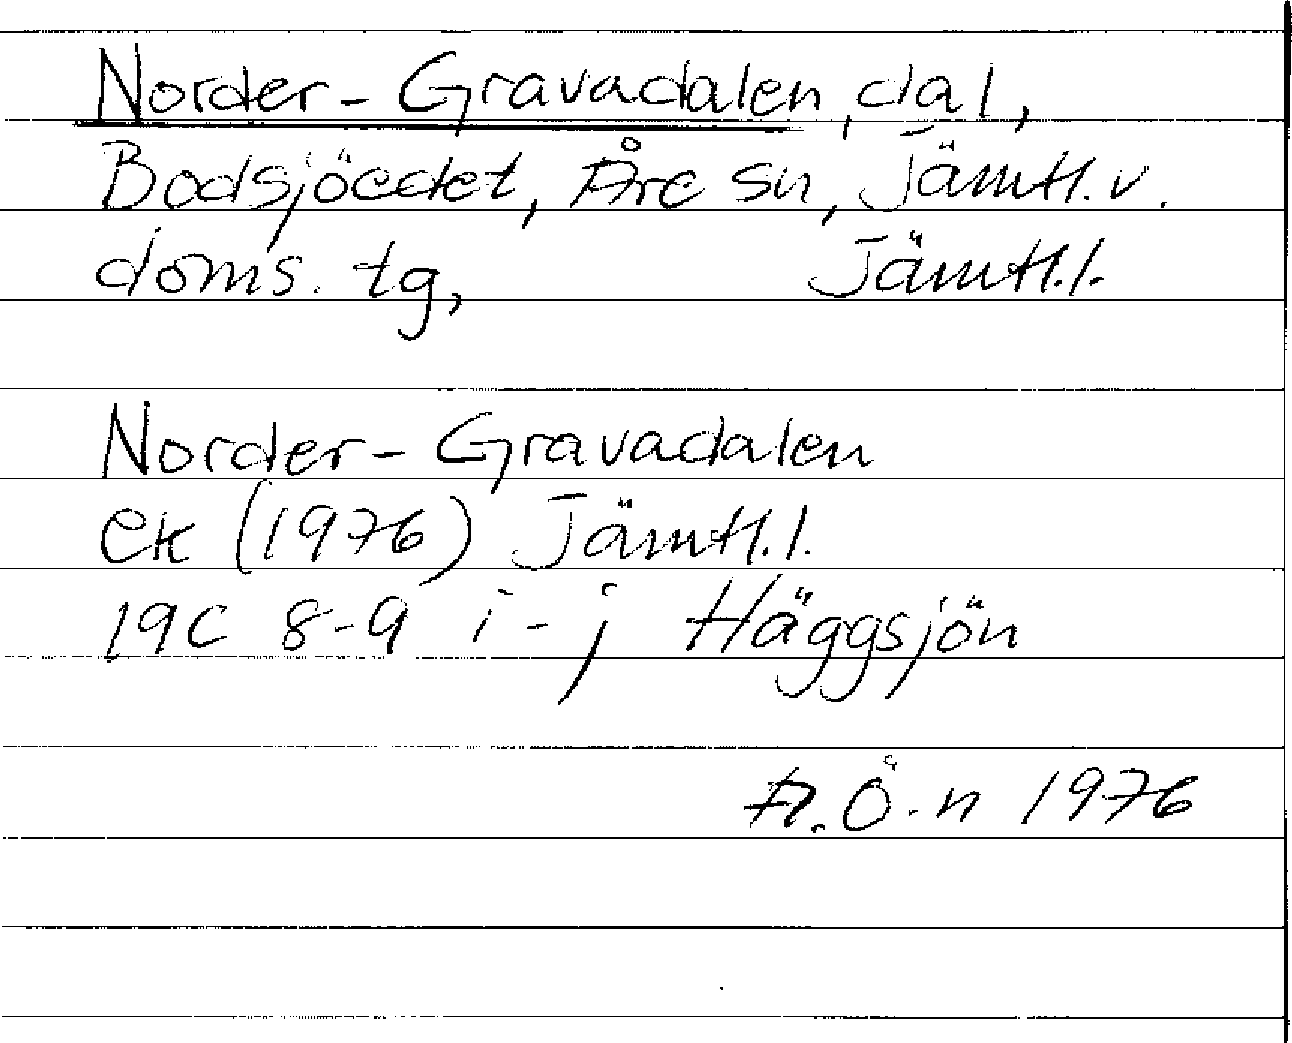 Norder-Gravadalen, dal,
Bodsjöedet, Åre sn, Jämtl. v.
doms. tg, Jämtl. l.
Norder-Gravadalen
ek (1976) Jämtl. l.
19C 8-9 i-j Häggsjön
A. Ö-n 1976